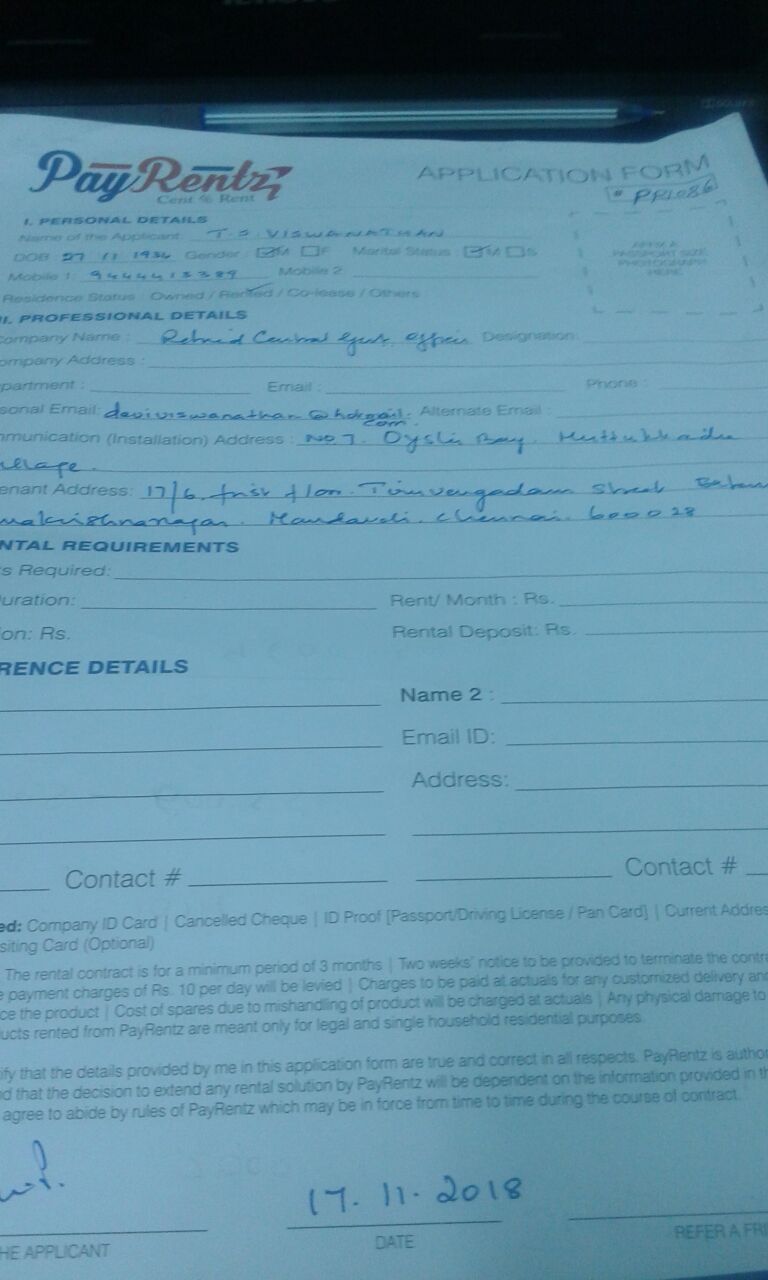 PayRentz
Cent % Rent
APPLICATION FORM
# PR1086
I. PERSONAL DETAILS
Name of the Applicant : T.S. VISWANATHAN
DOB 27 11 1934 Gender : M F Marital Status : M S
Mobile 1: 9444413389 Mobile 2:
AFFIX A
PASSPORT SIZE
PHOTOGRAPH
HERE
Residence Status : Owned / Rented / Co-lease / Others
II. PROFESSIONAL DETAILS
ompany Name : Retired Central Govt. Designation:
ompany Address :
partment : Email : Phone :
sonal Email: deviviswanathan@hotmail. Alternate Email
com
mmunication (Installation) Address : No 7. Oyster Bay. Muttukkadu
village.
enant Address: 17/6, first floor. Tiruvengadam Street
makrishnanagar. Mandaveli. Chennai. 600028
NTAL REQUIREMENTS
s Required:
uration: Rent/ Month : Rs.
on: Rs. Rental Deposit: Rs.
RENCE DETAILS
Name 2 :
Email ID:
Address:
Contact # Contact #
ed: Company ID Card | Cancelled Cheque | ID Proof [Passport/Driving License / Pan Card] | Current Addres
siting Card (Optional)
The rental contract is for a minimum period of 3 months | Two weeks' notice to be provided to terminate the contra
e payment charges of Rs. 10 per day will be levied | Charges to be paid at actuals for any customized delivery an
ce the product | Cost of spares due to mishandling of product will be charged at actuals | Any physical damage to
ucts rented from PayRentz are meant only for legal and single household residential purposes.
ify that the details provided by me in this application form are true and correct in all respects. PayRentz is author
d that the decision to extend any rental solution by PayRentz will be dependent on the information provided in th
agree to abide by rules of PayRentz which may be in force from time to time during the course of contract.
17. 11. 2018
HE APPLICANT DATE REFER A FRI